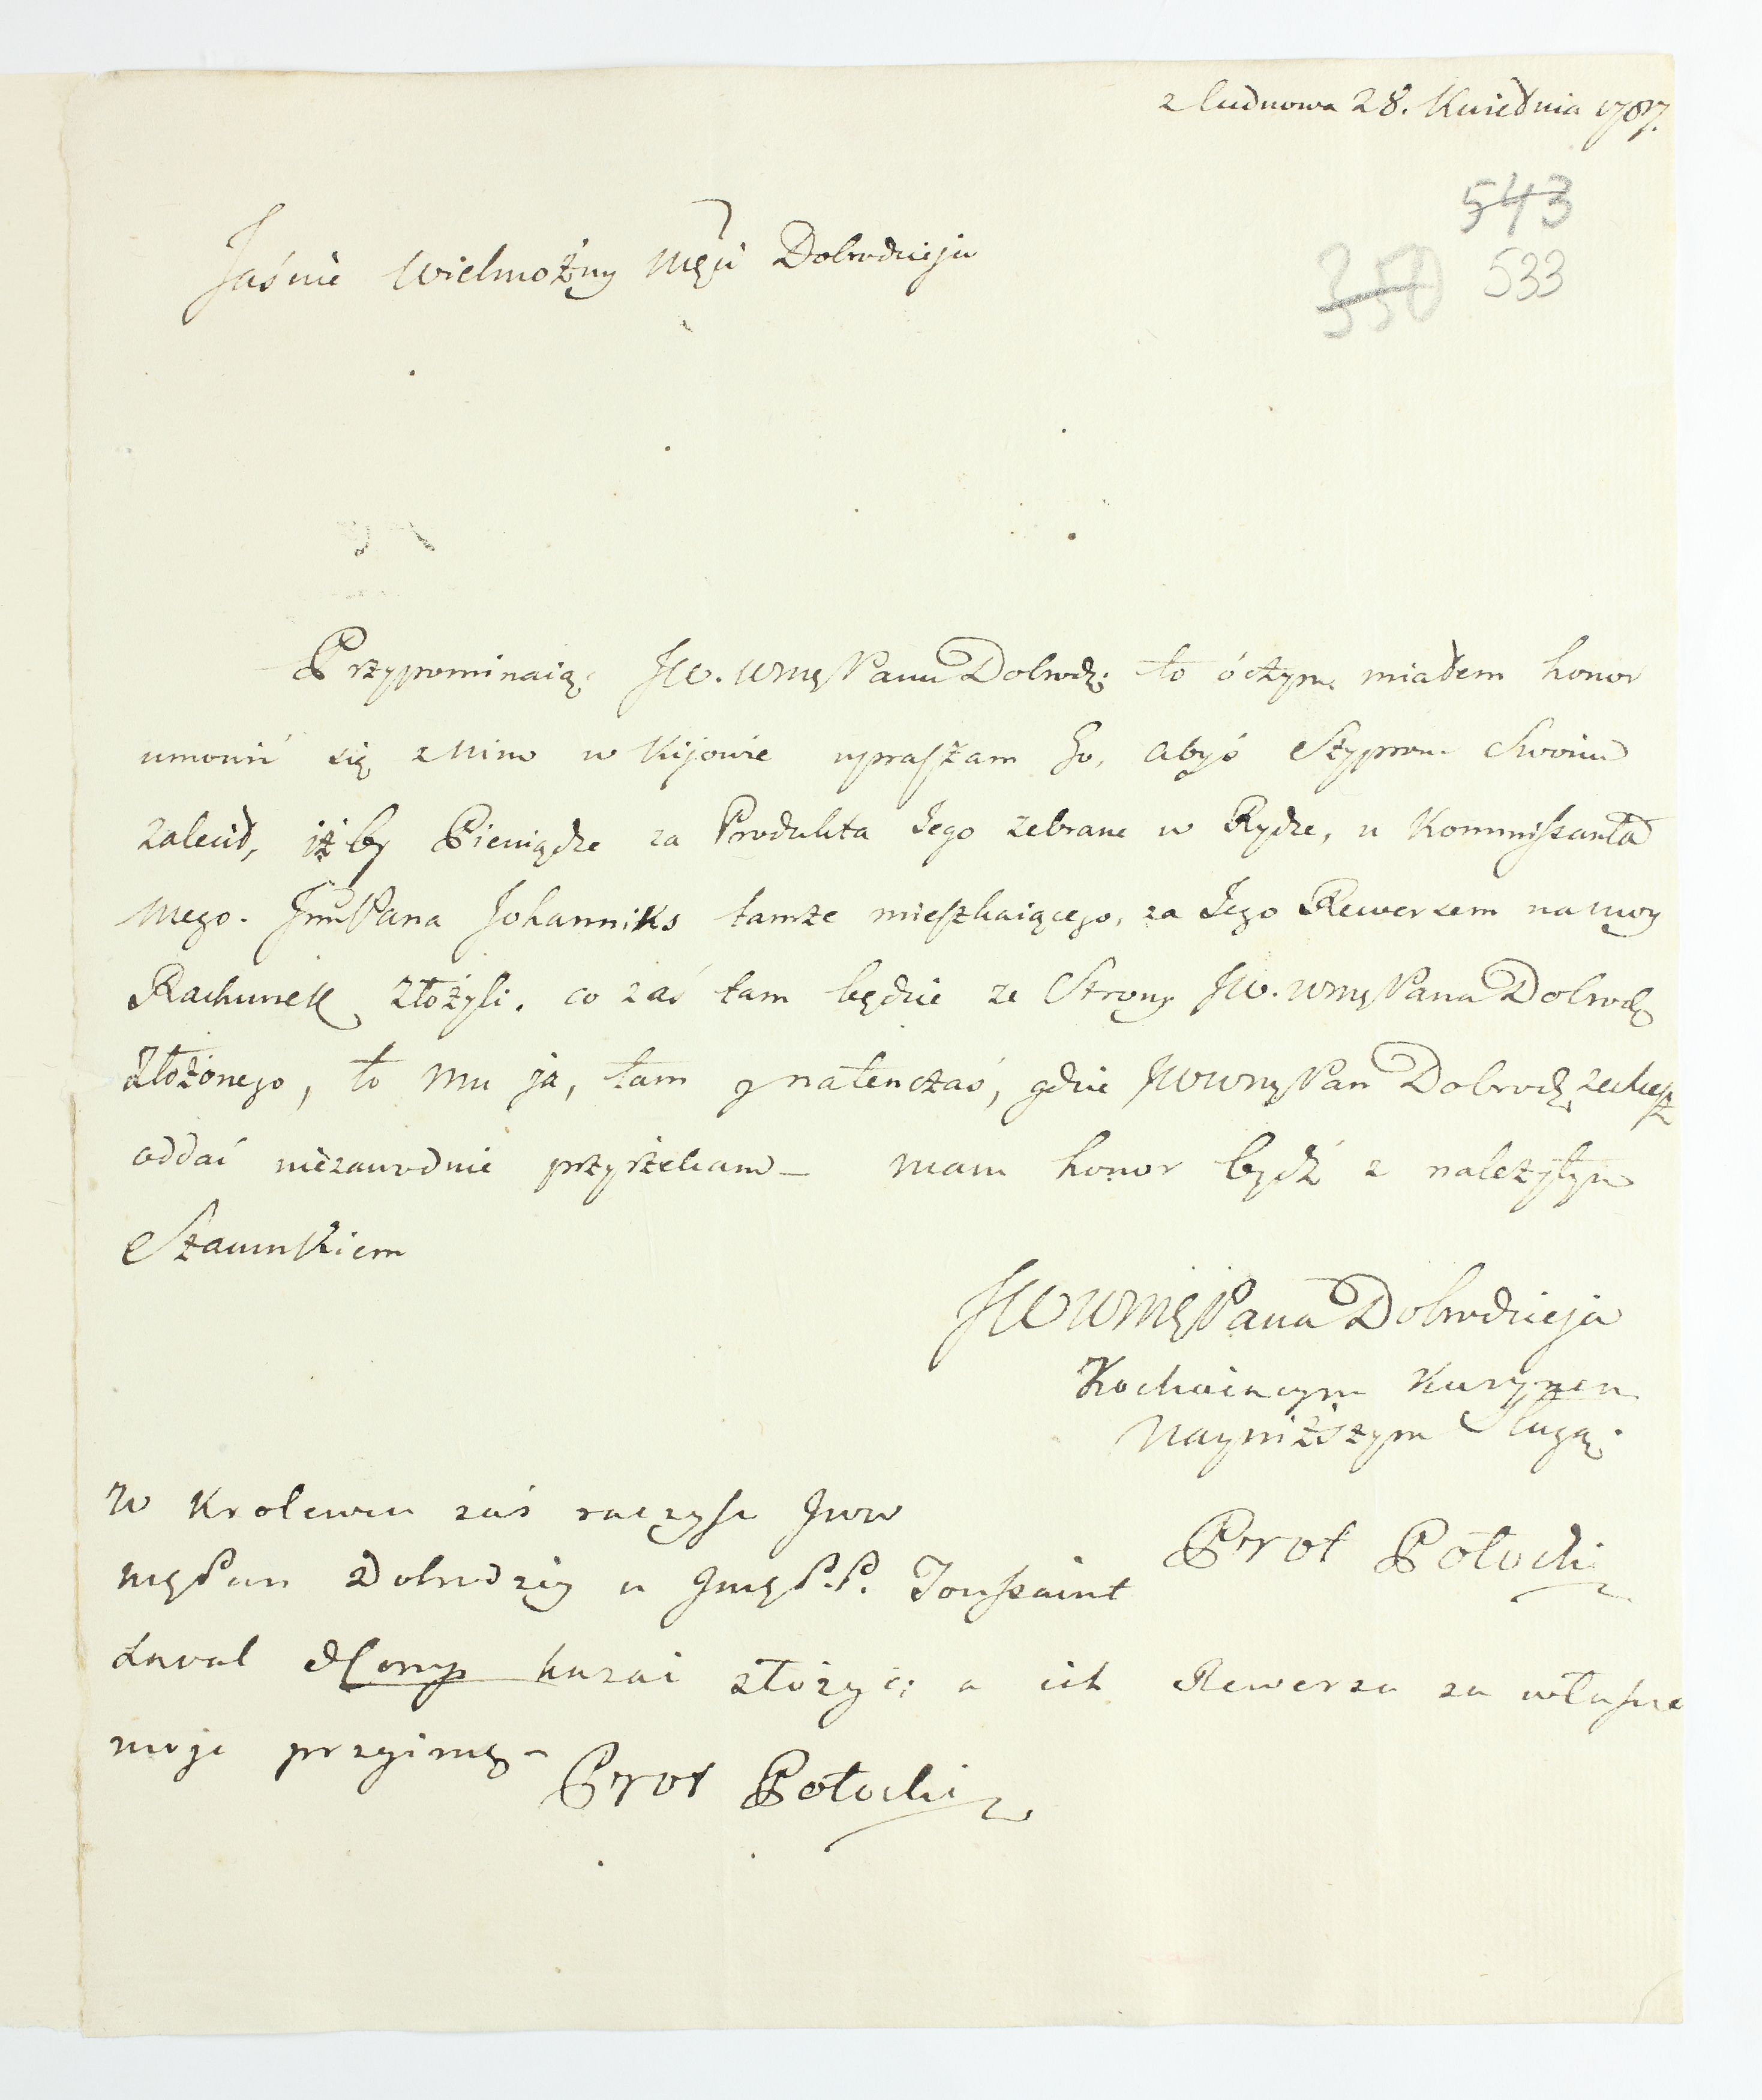 z Cudnowa 28. Kwietnia 1787.
543
350 533
Jaśnie Wielmożny Mści Dobrodzieju
Przypominaiąc JW. WMę Panu Dobrodz: to ó czym miałem honor
umowić się z Nim w Kijowie upraszam Go, abyś Szyprom Swoim
zalecił, iżby Pieniądze za Produkta Jego zebrane w Rydze, u Kommissanta
mego. Jmć Pana Johanniks tamże mieszkaiącego, za Jego Rewersem na moy
Rachunek złożyli. co zaś tam będzie ze Strony JW. WMę Pana Dobrodz
złożonego, to mu ja, tam y natenczas, gdzie JWWMę Pan Dobrodz zechcesz
oddać niezawodnie przyrzekam_ mam honor bydź z należytym
Szacunkiem
JWWMę Pana Dobrodzieja
Kochaiącym Kuzynem
Nayniższym Sługą.
Prot Potocki
W Krolewcu zaś raczysz JWW
Mę Pan Dobrodziey u Jmę P.P. Toussaint
Laval & Comp kazać złożyć; a ich Rewersa za własne
moje przyimę_
Prot Potocki